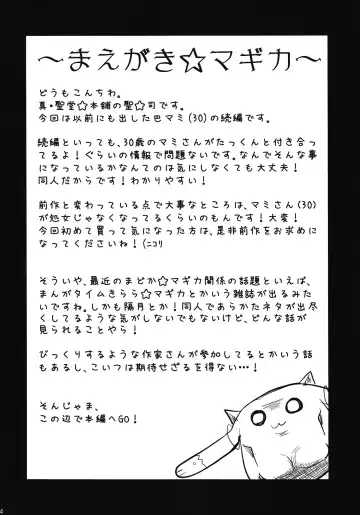 ～まえがき☆マギカ～
どうもこんちわ。
真・聖堂☆本舗の聖☆司です。
今回は以前にも出した巴マミ(30)の続編です。
続編といっても、30歳のマミさんがたっくんと付き合
ってるよ！ぐらいの情報で問題ないです。なんでそんな事
になっているかなんてのは気にしなくても大丈夫！
同人だからです！わかりやすい！
前作と変わっている点で大事なところは、マミさん(30)
が処女じゃなくなってるくらいのもんです！大変！
今回初めて買って気になった方は、是非前作をお求めに
なってくださいね！(ﾆｺﾘ
そういや、最近のまどか☆マギカ関係の話題といえば、
まんがタイムきらら☆マギカとかいう雑誌が出るみたい
ですね。しかも隔月とか！同人であらかたネタが出尽
くしてるような気がしないでもないけど、どんな話が
見られることやら！
びっくりするような作家さんが参加してるとかいう話
もあるし、こいつは期待せざるを得ない…！
そんじゃま、
この辺で本編へGO！
4